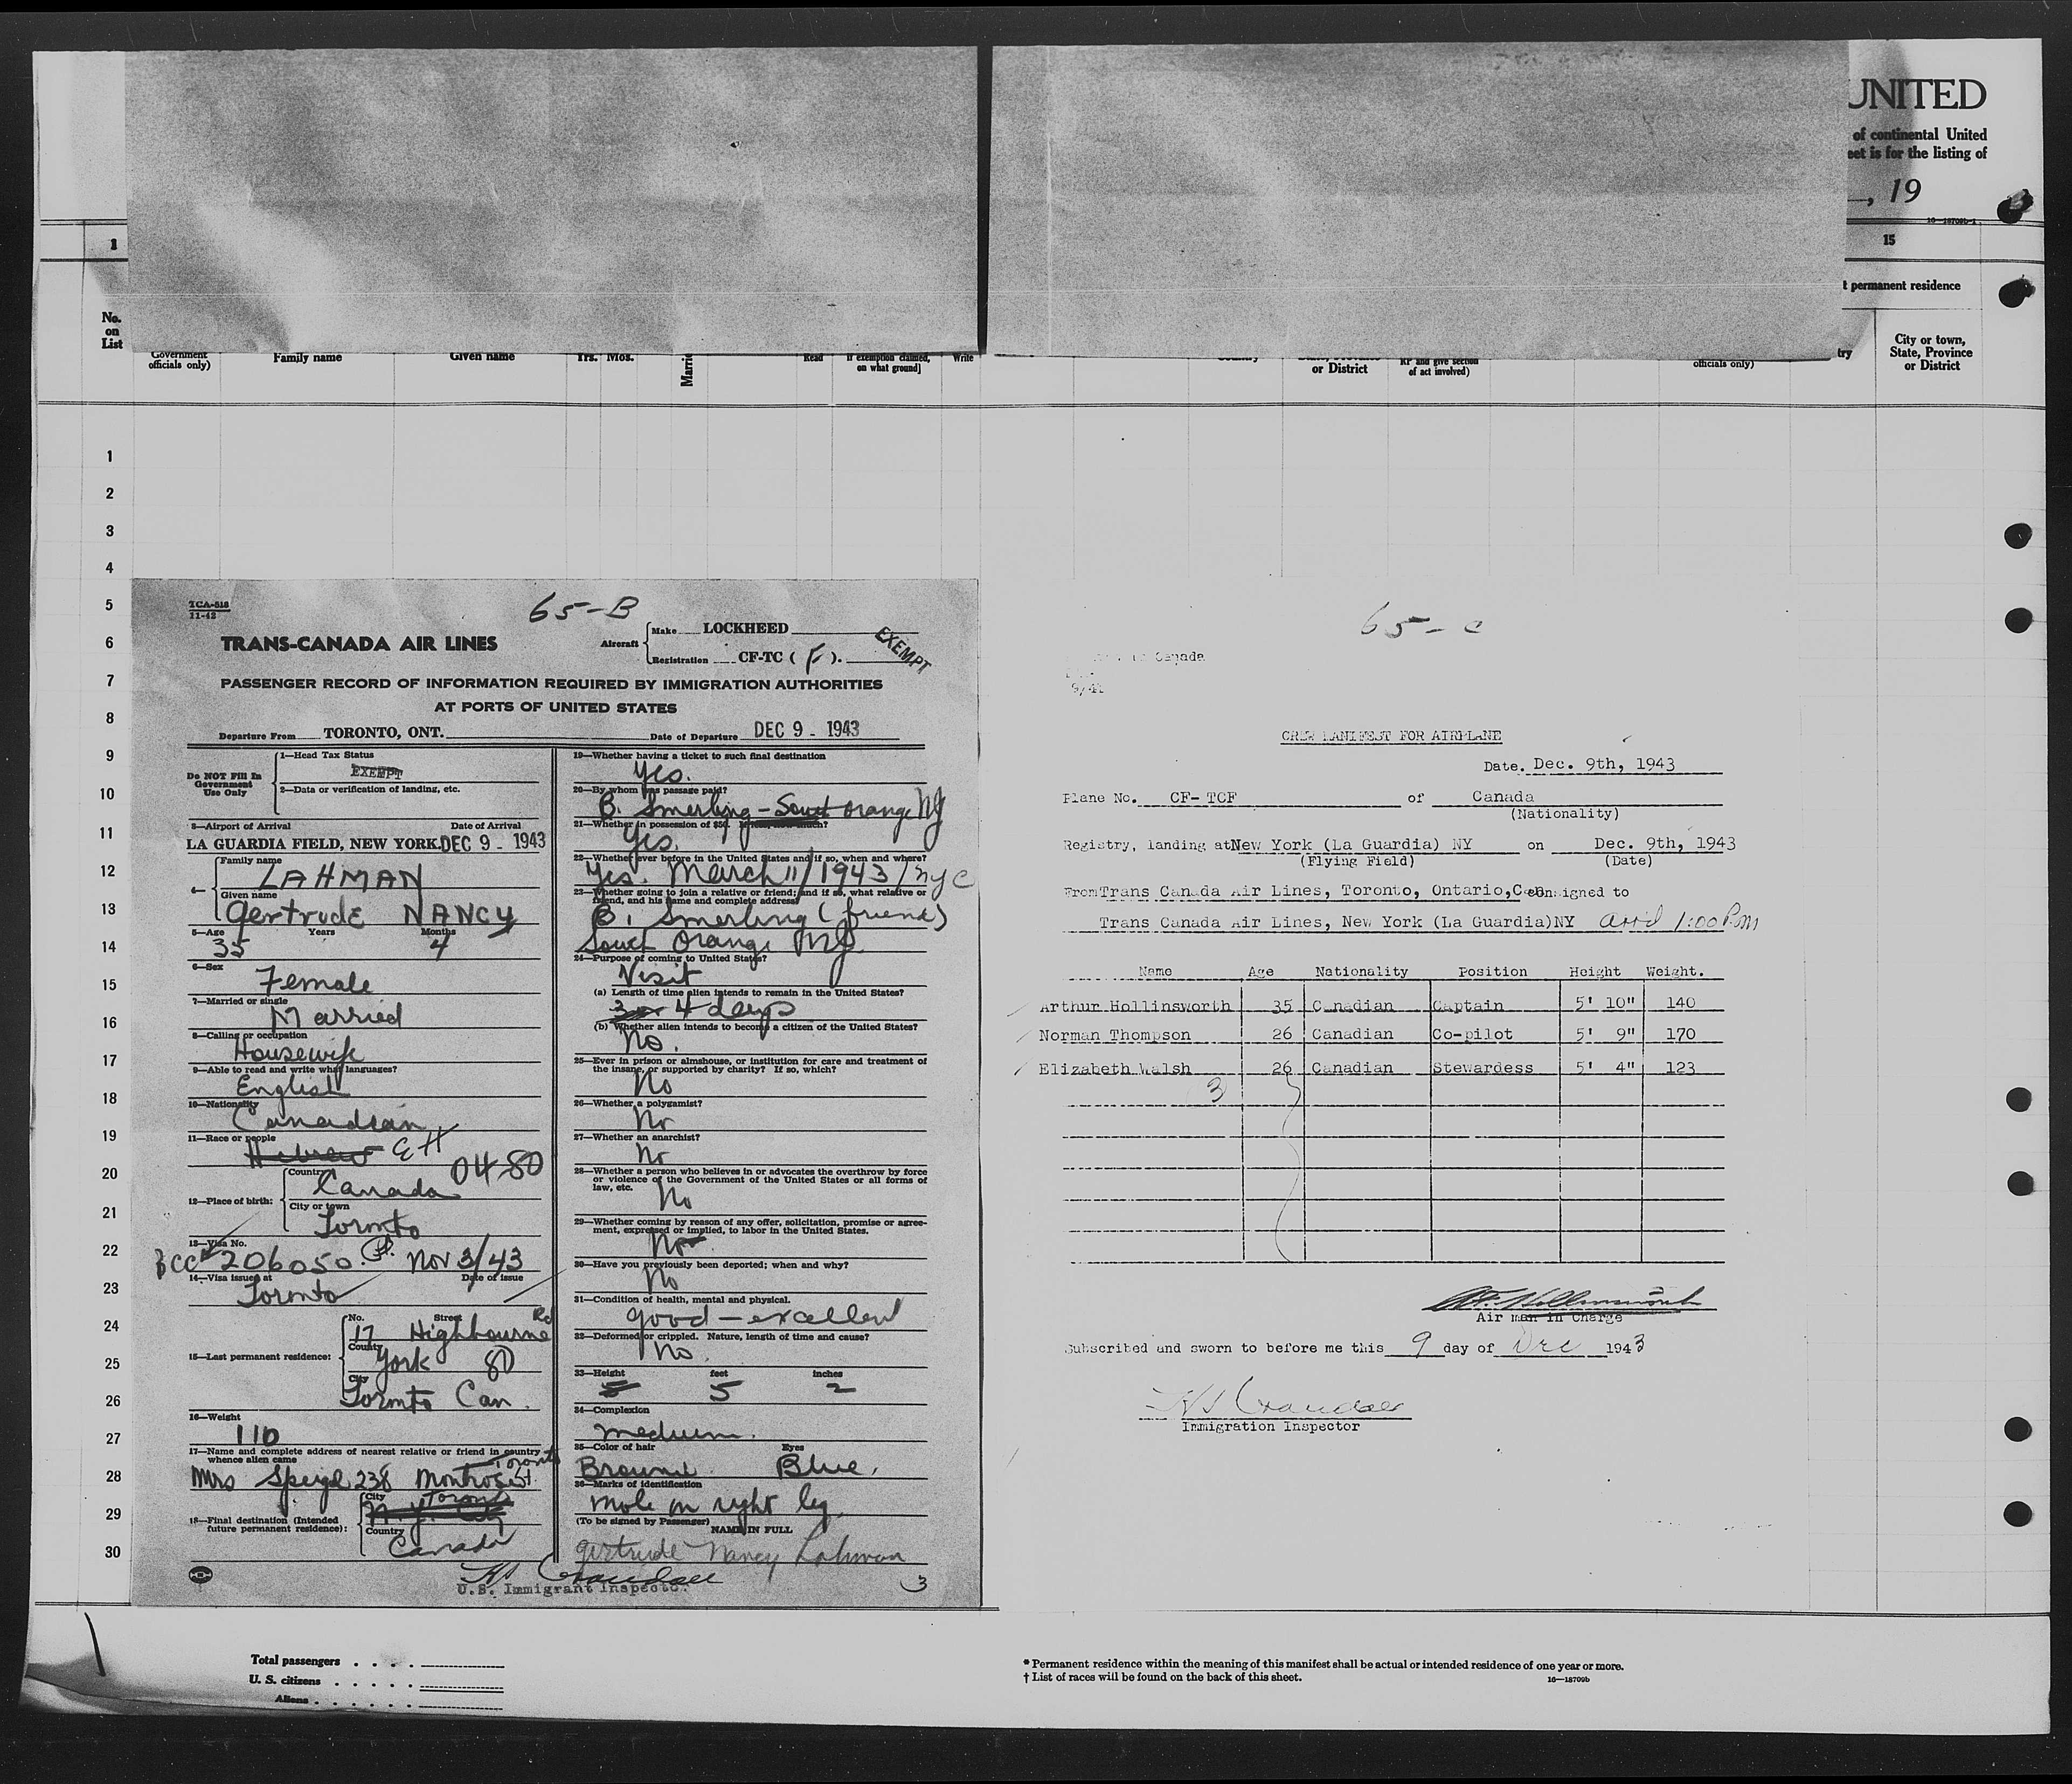 UNITED
of continental United
eet is for the listing of
, 19
16—18709b-1
1
15
t permanent residence
No.
on
List
Government
officials only)
Family name
Given name
Yrs. Mos.
Read
If exemption claimed,
on what ground]
Write
or District
RP and give section
of act involved)
officials only)
try
City or town,
State, Province
or District
1
2
3
4
5
6
7
8
9
10
11
12
13
14
15
16
17
18
19
20
21
22
23
24
25
26
27
28
29
30
TCA-518
11-42
65-B
TRANS-CANADA AIR LINES
Aircraft
Make LOCKHEED
Registration CF-TC ( F ).
EXEMPT
PASSENGER RECORD OF INFORMATION REQUIRED BY IMMIGRATION AUTHORITIES
AT PORTS OF UNITED STATES
Departure From TORONTO, ONT. Date of Departure DEC 9 - 1943
Do NOT Fill In
Government
Use Only
1—Head Tax Status
EXEMPT
2—Data or verification of landing, etc.
3—Airport of Arrival Date of Arrival
LA GUARDIA FIELD, NEW YORK. DEC 9 - 1943
4—
Family name
LAHMAN
Given name
Gertrude NANCY
5—Age Years Months
35 4
6—Sex
Female
7—Married or single
Married
8—Calling or occupation
Housewife
9—Able to read and write what languages?
English
10—Nationality
Canadian
11—Race or people
Hebrew EH
04-80
12—Place of birth:
Country
Canada
City or town
Toronto
13—Visa No.
BCC# 206050 Nov 3/43
14—Visa issued at Date of issue
Toronto
15—Last permanent residence:
No. Street
17 Highbourne Rd
County
York 80
City
Toronto Can.
16—Weight
110
17—Name and complete address of nearest relative or friend in country
whence alien came
Toronto
Mrs Speigel 238 Montrose St.
18—Final destination (Intended
future permanent residence):
City
Toronto
N.Y. City
Country
Canada
19—Whether having a ticket to such final destination
Yes.
20—By whom was passage paid?
B. Smerling - South Orange NJ
21—Whether in possession of $50. If less, how much?
Yes.
22—Whether ever before in the United States and if so, when and where?
Yes. March 11/1943/NYC
23—Whether going to join a relative or friend; and if so, what relative or
friend, and his name and complete address?
B. Smerling (friend)
South Orange NJ
24—Purpose of coming to United States?
Visit
(a) Length of time alien intends to remain in the United States?
3 or 4 days
(b) Whether alien intends to become a citizen of the United States?
No.
25—Ever in prison or almshouse, or institution for care and treatment of
the insane, or supported by charity? If so, which?
No
26—Whether a polygamist?
No
27—Whether an anarchist?
No
28—Whether a person who believes in or advocates the overthrow by force
or violence of the Government of the United States or all forms of
law, etc.
No
29—Whether coming by reason of any offer, solicitation, promise or agree-
ment, expressed or implied, to labor in the United States.
No
30—Have you previously been deported; when and why?
No
31—Condition of health, mental and physical.
good - excellent
32—Deformed or crippled. Nature, length of time and cause?
No.
33—Height feet inches
5 5 2
34—Complexion
medium.
35—Color of hair Eyes
Brown Blue.
36—Marks of identification
mole on right leg
(To be signed by Passenger)
NAME IN FULL
Gertrude Nancy Lahman
U.S. Immigrant Inspector.
3
65-C
Canada
9/42
CREW MANIFEST FOR AIRPLANE
Date. Dec. 9th, 1943
Plane No. CF- TCF of Canada
(Nationality)
Registry, landing at New York (La Guardia) NY on Dec. 9th, 1943
(Flying Field) (Date)
From Trans Canada Air Lines, Toronto, Ontario, Can. consigned to
Trans Canada Air Lines, New York (La Guardia) NY arr'd 1:00 P.M
Name Age Nationality Position Height Weight.
Arthur Hollinsworth 35 Canadian Captain 5' 10" 140
Norman Thompson 26 Canadian Co-pilot 5' 9" 170
Elizabeth Walsh 26 Canadian Stewardess 5' 4" 123
3
Air man in Charge
Subscribed and sworn to before me this 9 day of Dec 1943
Immigration Inspector
Total passengers
U. S. citizens
Aliens
* Permanent residence within the meaning of this manifest shall be actual or intended residence of one year or more.
† List of races will be found on the back of this sheet.
16—18709b